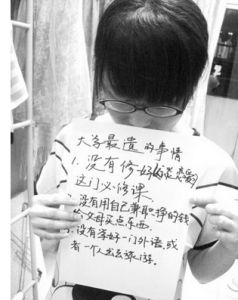 大学最遗的事情
1.没有修好谈恋爱
这门必修课.
没有用自己兼职挣的钱
给父母买点东西.
3.没有学好一门外语,或
者一个人出去旅游.